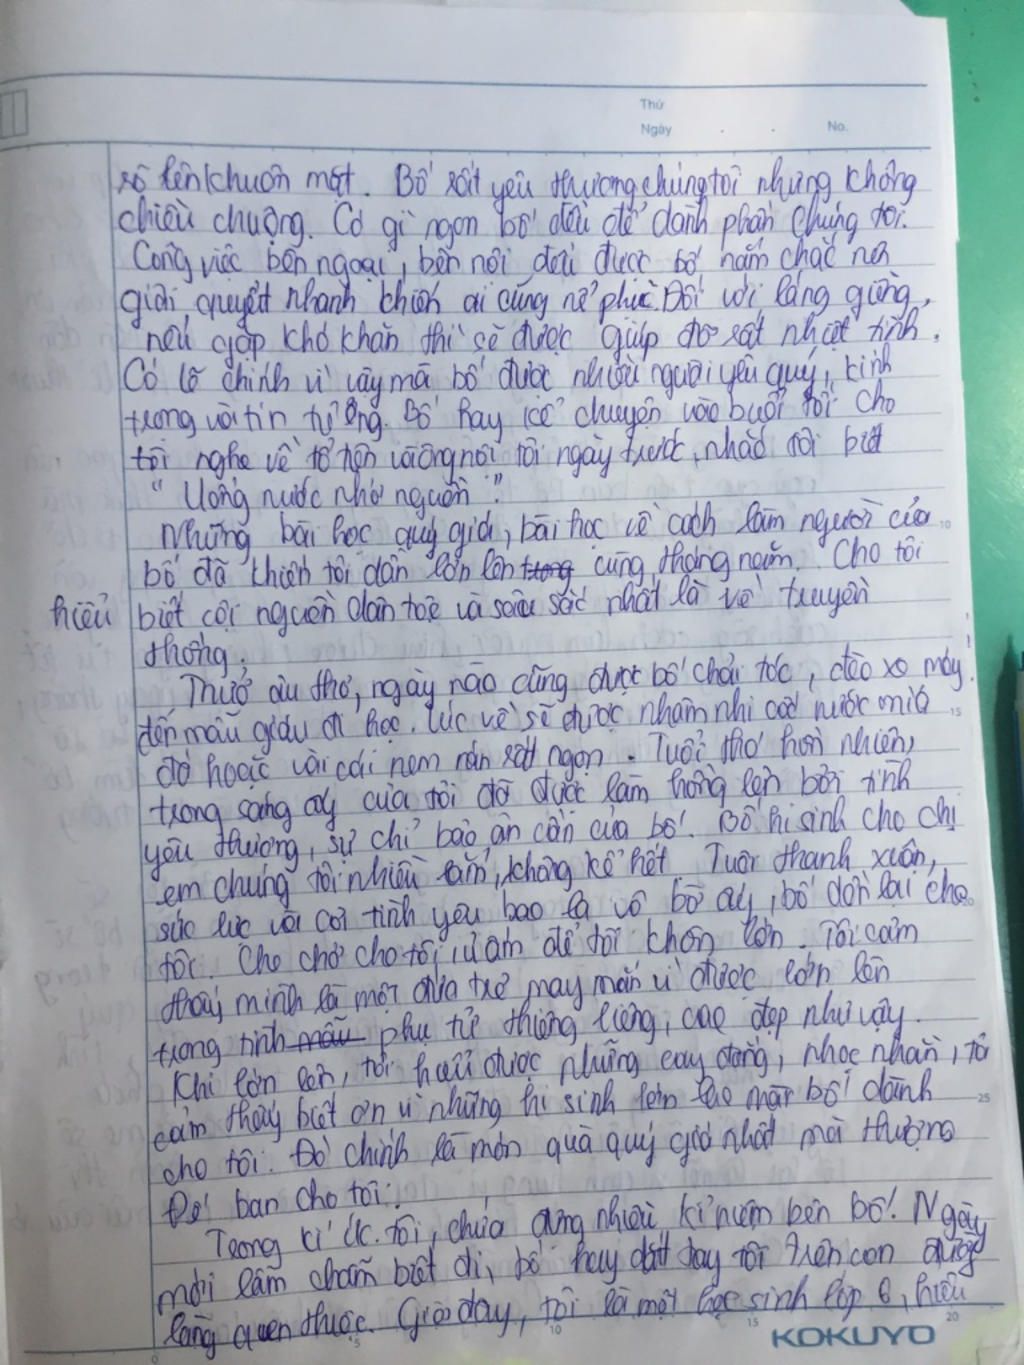 Thứ
Ngày . . No.
xô lên khuôn mặt. Bố rất yêu thương chúng tôi nhưng không
chiều chuộng. Có gì ngon bố đều để dành phần chúng tôi.
Công việc bên ngoại, bên nội đều được bố nắm chắc nên
giải quyết nhanh khiến ai cũng nể phục. Đối với láng giềng,
nếu gặp khó khăn thì sẽ được giúp đỡ rất nhiệt tình.
Có lẽ chính vì vậy mà bố được nhiều người yêu quý, kính
trọng và tin tưởng. Bố hay kể chuyện vào buổi tối cho
tôi nghe về tổ tiên và ông nội tôi ngày trước, nhắc tôi biết
"Uống nước nhớ nguồn".
Những bài học quý giá, bài học về cách làm người của 10
bố đã khiến tôi dần lớn lên trong cùng tháng năm. Cho tôi
hiểu biết cội nguồn dân tộc và sâu sắc nhất là về truyền
thống.
Thuở ấu thơ, ngày nào cũng được bố chải tóc, đèo xe máy
đến mẫu giáo đi học. Lúc về sẽ được nhâm nhi cốc nước mía 15
đá hoặc vài cái nem rán rất ngon. Tuổi thơ hồn nhiên,
trong sáng ấy của tôi đã được làm hồng lên bởi tình
yêu thương, sự chỉ bảo ân cần của bố. Bố hi sinh cho chị
em chúng tôi nhiều lắm, không kể hết. Tuổi thanh xuân,
sức lực và cả tình yêu bao la vô bờ ấy, bố dồn lại cho
tôi. Che chở cho tôi, ủ ấm để tôi khôn lớn. Tôi cảm
thấy mình là một đứa trẻ may mắn vì được lớn lên
trong tình mẫu phụ tử thiêng liêng, cao đẹp như vậy.
Khi lớn lên, tôi hiểu được những cay đắng, nhọc nhằn, tôi
cảm thấy biết ơn vì những hi sinh lớn lao mà bố dành 25
cho tôi. Đó chính là món quà quý giá nhất mà thượng
Đế ban cho tôi.
Trong kí ức tôi, chứa đựng nhiều kỉ niệm bên bố. Ngày
mới lẫm chẫm biết đi, bố hay dắt tay tôi trên con đường
làng quen thuộc. Giờ đây, tôi là một học sinh lớp 6, hiểu
0 5 10 15 20
KOKUYO